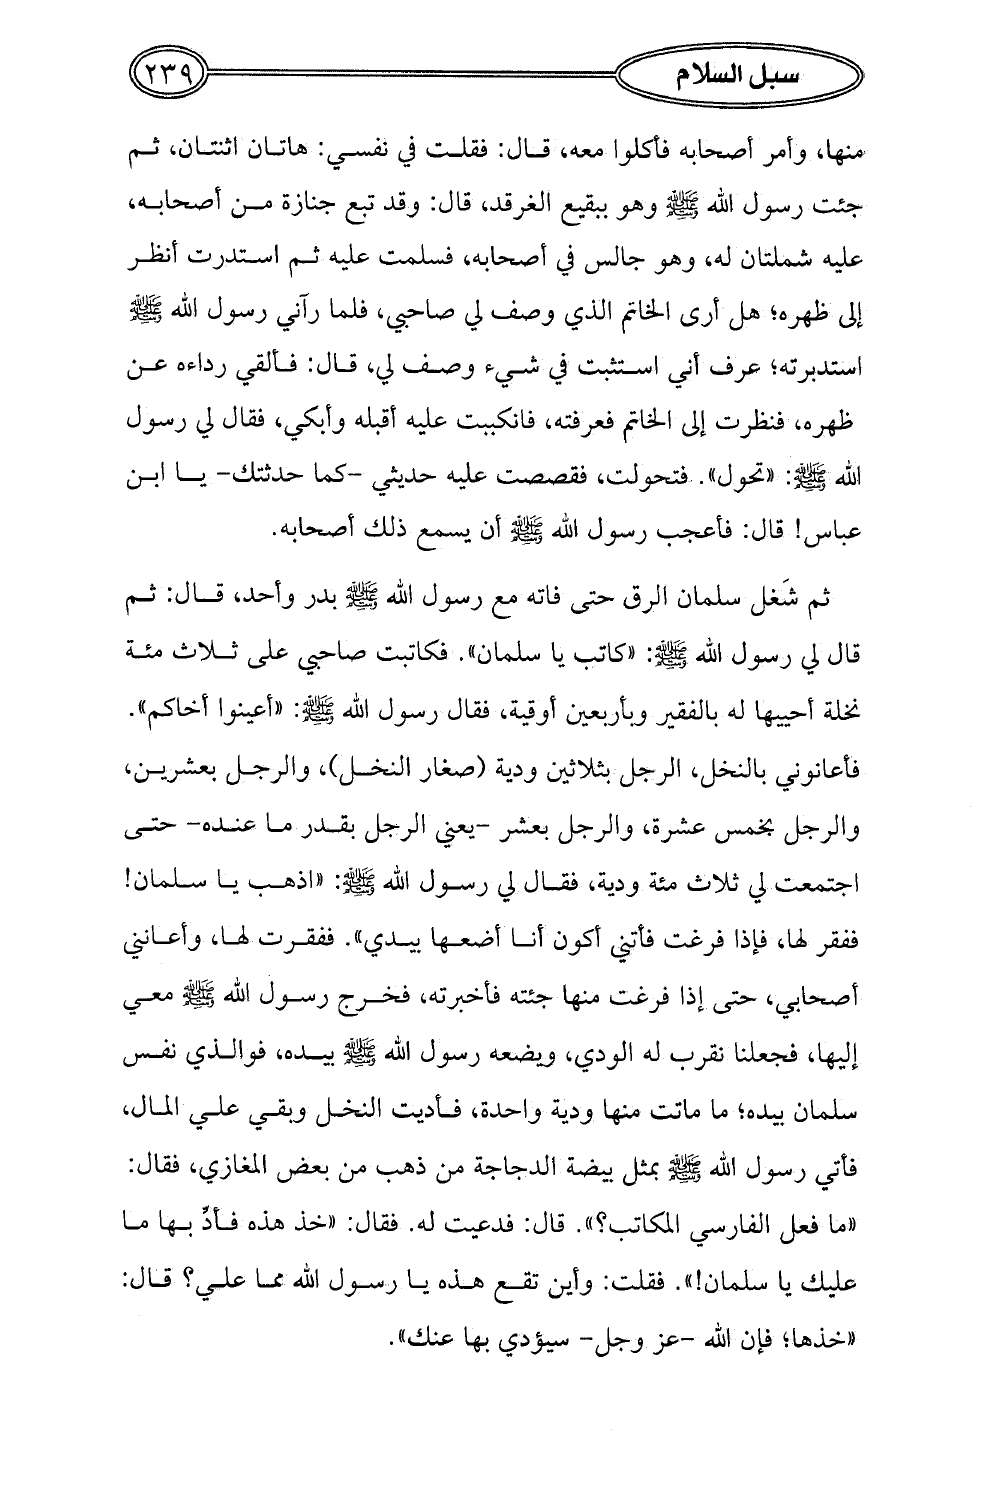 سبل السلام ٢٣٩
منها، وأمر أصحابه فأكلوا معه، قال: فقلت في نفسي: هاتان اثنتان، ثم
جئت رسول الله ﷺ وهو ببقيع الغرقد، قال: وقد تبع جنازة من أصحابه،
عليه شملتان له، وهو جالس في أصحابه، فسلمت عليه ثم استدرت أنظر
إلى ظهره؛ هل أرى الخاتم الذي وصف لي صاحبي، فلما رآني رسول الله ﷺ
استدبرته؛ عرف أني استثبت في شيء وصف لي، قال: فألقي رداءه عن
ظهره، فنظرت إلى الخاتم فعرفته، فانكببت عليه أقبله وأبكي، فقال لي رسول
الله ﷺ: «تحول». فتحولت، فقصصت عليه حديثي -كما حدثتك- يا ابن
عباس! قال: فأعجب رسول الله ﷺ أن يسمع ذلك أصحابه.
ثم شَغل سلمان الرق حتى فاته مع رسول الله ﷺ بدر وأحد، قال: ثم
قال لي رسول الله ﷺ: «كاتب يا سلمان». فكاتبت صاحبي على ثلاث مئة
نخلة أحييها له بالفقير وبأربعين أوقية، فقال رسول الله ﷺ: «أعينوا أخاكم».
فأعانوني بالنخل، الرجل بثلاثين ودية (صغار النخل)، والرجل بعشرين،
والرجل بخمس عشرة، والرجل بعشر -يعني الرجل بقدر ما عنده- حتى
اجتمعت لي ثلاث مئة ودية، فقال لي رسول الله ﷺ: «اذهب يا سلمان!
ففقر لها، فإذا فرغت فأتني أكون أنا أضعها بيدي». ففقرت لها، وأعانني
أصحابي، حتى إذا فرغت منها جئته فأخبرته، فخرج رسول الله ﷺ معي
إليها، فجعلنا نقرب له الودي، ويضعه رسول الله ﷺ بيده، فوالذي نفس
سلمان بيده؛ ما ماتت منها ودية واحدة، فأديت النخل وبقي علي المال،
فأتي رسول الله ﷺ بمثل بيضة الدجاجة من ذهب من بعض المغازي، فقال:
«ما فعل الفارسي المكاتب؟». قال: فدعيت له. فقال: «خذ هذه فأدِّ بها ما
عليك يا سلمان!». فقلت: وأين تقع هذه يا رسول الله مما علي؟ قال:
«خذها؛ فإن الله -عز وجل- سيؤدي بها عنك».